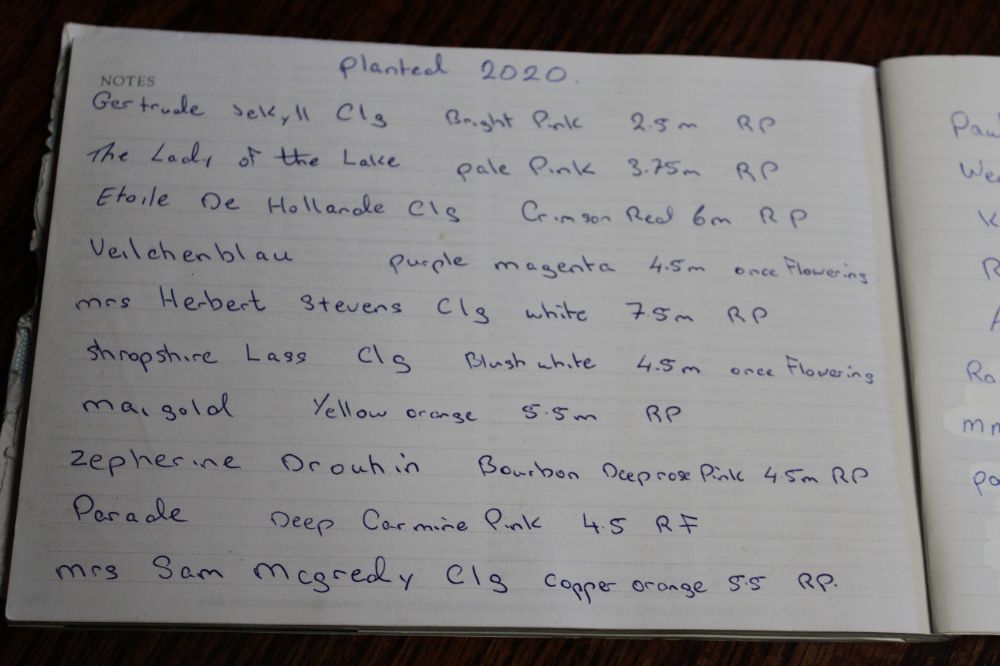 Planted 2020.
NOTES
Gertrude Jekyll Clg Bright Pink 2.5m RP
The Lady of the Lake pale Pink 3.75m RP
Etoile De Hollande Clg Crimson Red 6m RP
Veilchenblau purple magenta 4.5m once Flowering.
mrs Herbert Stevens Clg white 7.5m RP
Shropshire Lass Clg Blush white 4.5m once Flowering
maigold Yellow orange 5.5m RP
Zepherine Drouhin Bourbon Deep rose Pink 4.5m RP
Parade Deep Carmine Pink 4.5 RF
mrs Sam mcgredy Clg copper orange 5.5 RP.